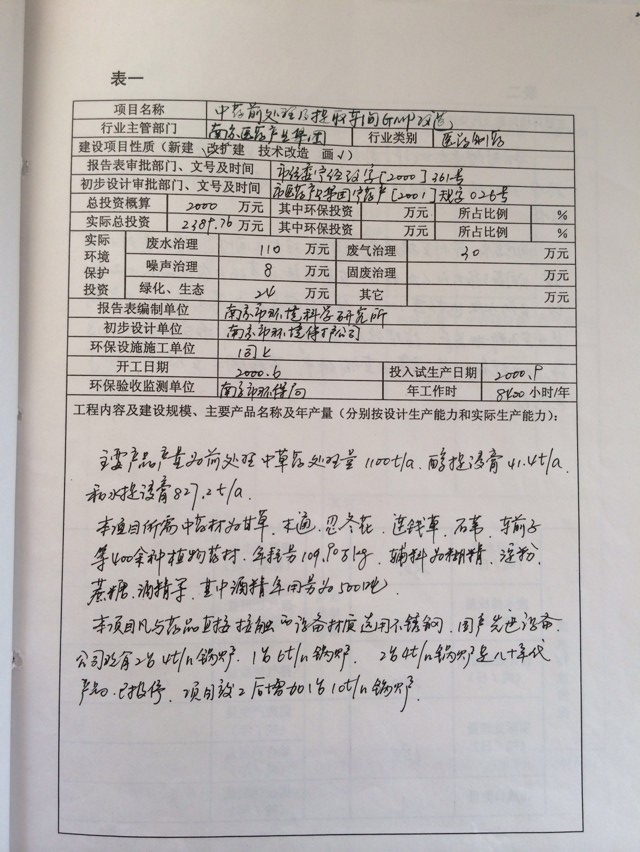 表一
项目名称 中药前处理及提取车间GMP改造
行业主管部门 南京医药产业集团 行业类别 医药制药
建设项目性质（新建 改扩建 技术改造 画√）
报告表审批部门、文号及时间 字[2000]361号
初步设计审批部门、文号及时间 市医药产业集团宁药产[2001]规字026号
总投资概算 2000 万元 其中环保投资 万元 所占比例 %
实际总投资 2389.76 万元 其中环保投资 万元 所占比例 %
实际环境保护投资 废水治理 110 万元 废气治理 30 万元
噪声治理 8 万元 固废治理 万元
绿化、生态 24 万元 其它 万元
报告表编制单位 南京市环境科学研究所
初步设计单位 南京市环境保护公司
环保设施施工单位 同上
开工日期 2000.6 投入试生产日期 2000.9
环保验收监测单位 南京市环保局 年工作时 8400 小时/年
工程内容及建设规模、主要产品名称及年产量（分别按设计生产能力和实际生产能力）：
主要产品产量为前处理中草药处理量1100t/a、醇提浸膏41.4t/a
和水提浸膏827.2t/a.
本项目所需中药材为甘草、木通、忍冬花、连钱草、石苇、车前子
等400余种植物药材、年耗量109.90万kg、辅料为糊精、淀粉、
蔗糖、酒精等、其中酒精年用量为500吨.
本项目凡与药品直接接触的设备材质选用不锈钢、国产先进设备.
公司现有2台4t/h锅炉、1台6t/h锅炉、2台4t/h锅炉是八十年代
产的、已报停、项目竣工后增加1台10t/h锅炉.